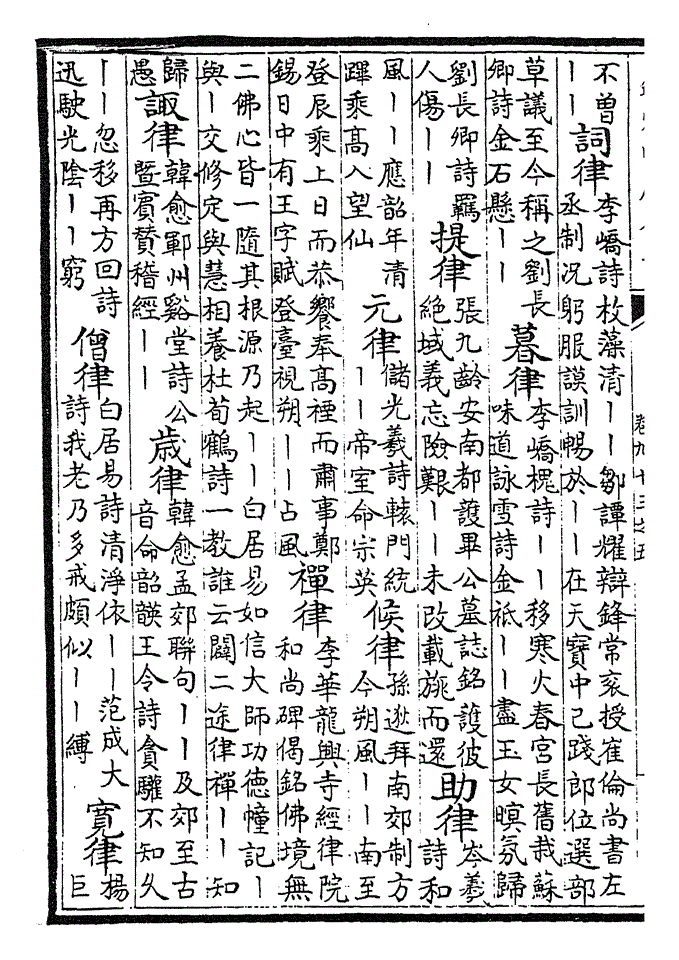 不曾
丨丨
詞律
李嶠詩枚藻清丨丨鄒譚耀辯鋒常衮授崔倫尚書左
丞制况躬服謨訓暢於丨丨在天寶中已踐郎位選部
草議至今稱之劉長
卿詩金石懸丨丨
暮律
李嶠槐詩丨丨移寒火春宮長舊栽蘇
味道詠雪詩金祗丨丨盡玉女暝氛歸
劉長卿詩羈
人傷丨丨
提律
張九齡安南都護畢公墓誌銘護彼
絶域義忘險艱丨丨未改載旐而還
助律
岑羲
詩和
風丨丨應韶年清
蹕乘高入望仙
元律
儲光羲詩轅門統
丨丨帝室命宗英
候律
孫逖拜南郊制方
今朔風丨丨南至
登辰乘上日而恭饗奉高禋而肅事鄭
錫日中有王字賦登臺視朔丨丨占風
禪律
李華龍興寺經律院
和尚碑偈銘佛境無
二佛心皆一隨其根源乃起丨丨白居易如信大師功德幢記丨
與丨交修定與慧相養杜荀鶴詩一教誰云闢二途律禪丨丨知
歸
愚
諏律
韓愈鄆州谿堂詩公
暨賓贊稽經丨丨
歲律
韓愈孟郊聯句丨丨及郊至古
音命韶韺王令詩貪驩不知久
丨丨忽移再方回詩
迅駛光陰丨丨窮
僧律
白居易詩清淨依丨丨范成大
詩我老乃多戒頗似丨丨縛
寛律
楊
巨
卷九十三之五